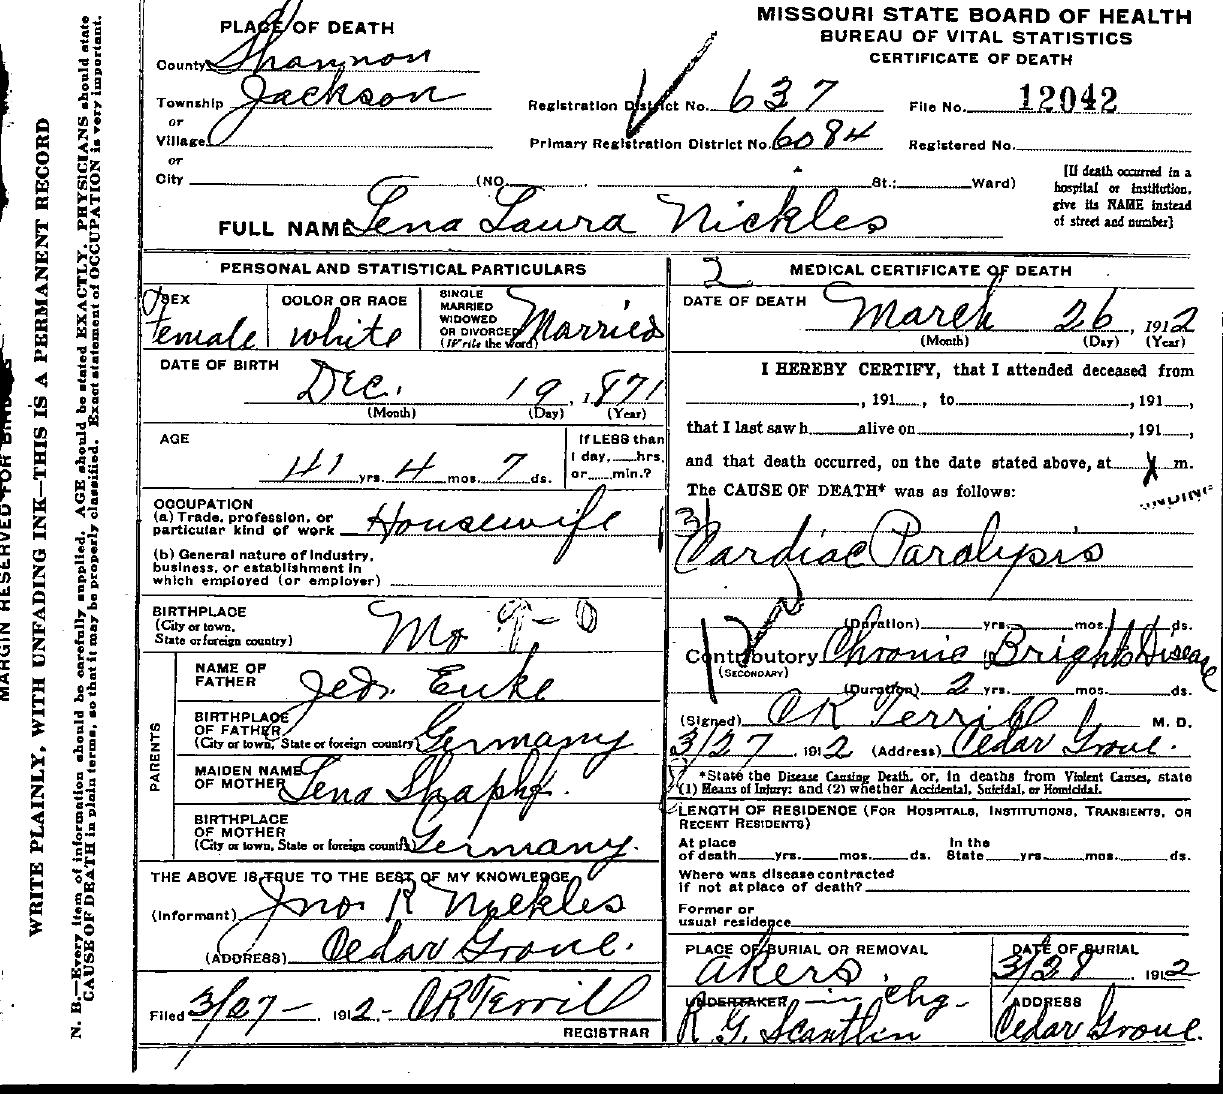 MISSOURI STATE BOARD OF HEALTH
BUREAU OF VITAL STATISTICS
CERTIFICATE OF DEATH
PLACE OF DEATH
County Shannon
Township Jackson
or
Village
or
City (NO. St.; Ward)
Registration District No. 637 File No. 12042
Primary Registration District No. 6084 Registered No.
[If death occurred in a
hospital or institution,
give its NAME instead
of street and number]
FULL NAME Lena Laura Nickles
PERSONAL AND STATISTICAL PARTICULARS
SEX Female
COLOR OR RACE white
SINGLE
MARRIED
WIDOWED
OR DIVORCED
(Write the word) Married
DATE OF BIRTH
Dec. 19, 1871
(Month) (Day) (Year)
AGE
41 yrs. 4 mos. 7 ds.
If LESS than
1 day, hrs.
or min.?
OCCUPATION
(a) Trade, profession, or
particular kind of work Housewife
(b) General nature of industry,
business, or establishment in
which employed (or employer)
BIRTHPLACE
(City or town,
State or foreign country) Mo 9-0
PARENTS
NAME OF
FATHER
BIRTHPLACE
OF FATHER
(City or town, State or foreign country) Germany
MAIDEN NAME
OF MOTHER Lena
BIRTHPLACE
OF MOTHER
(City or town, State or foreign country) Germany.
THE ABOVE IS TRUE TO THE BEST OF MY KNOWLEDGE
(Informant) Jno R Nickles
(ADDRESS) Cedar Grove.
Filed 3/27 - 1912 - OR Terrill
REGISTRAR
2 MEDICAL CERTIFICATE OF DEATH
DATE OF DEATH March 26, 1912
(Month) (Day) (Year)
I HEREBY CERTIFY, that I attended deceased from
, 191 , to , 191 ,
that I last saw h alive on , 191 ,
and that death occurred, on the date stated above, at X m.
The CAUSE OF DEATH* was as follows:
Cardiac Paralysis
(Duration) yrs. mos. ds.
Contributory Chronic Brights Disease
(SECONDARY)
(Duration) 2 yrs. mos. ds.
(Signed) OR Terrill M. D.
3/27, 1912 (Address) Cedar Grove.
*State the Disease Causing Death, or, in deaths from Violent Causes, state
(1) Means of Injury; and (2) whether Accidental, Suicidal, or Homicidal.
LENGTH OF RESIDENCE (FOR HOSPITALS, INSTITUTIONS, TRANSIENTS, OR
RECENT RESIDENTS)
At place In the
of death yrs. mos. ds. State yrs. mos. ds.
Where was disease contracted
if not at place of death?
Former or
usual residence
PLACE OF BURIAL OR REMOVAL
Akers.
DATE OF BURIAL
3/28, 1912
UNDERTAKER - in chg -
R G. Scantlin
ADDRESS
Cedar Grove.
MARGIN RESERVED FOR BINDING
WRITE PLAINLY, WITH UNFADING INK—THIS IS A PERMANENT RECORD
N. B.—Every item of information should be carefully supplied. AGE should be stated EXACTLY. PHYSICIANS should state
CAUSE OF DEATH in plain terms, so that it may be properly classified. Exact statement of OCCUPATION is very important.